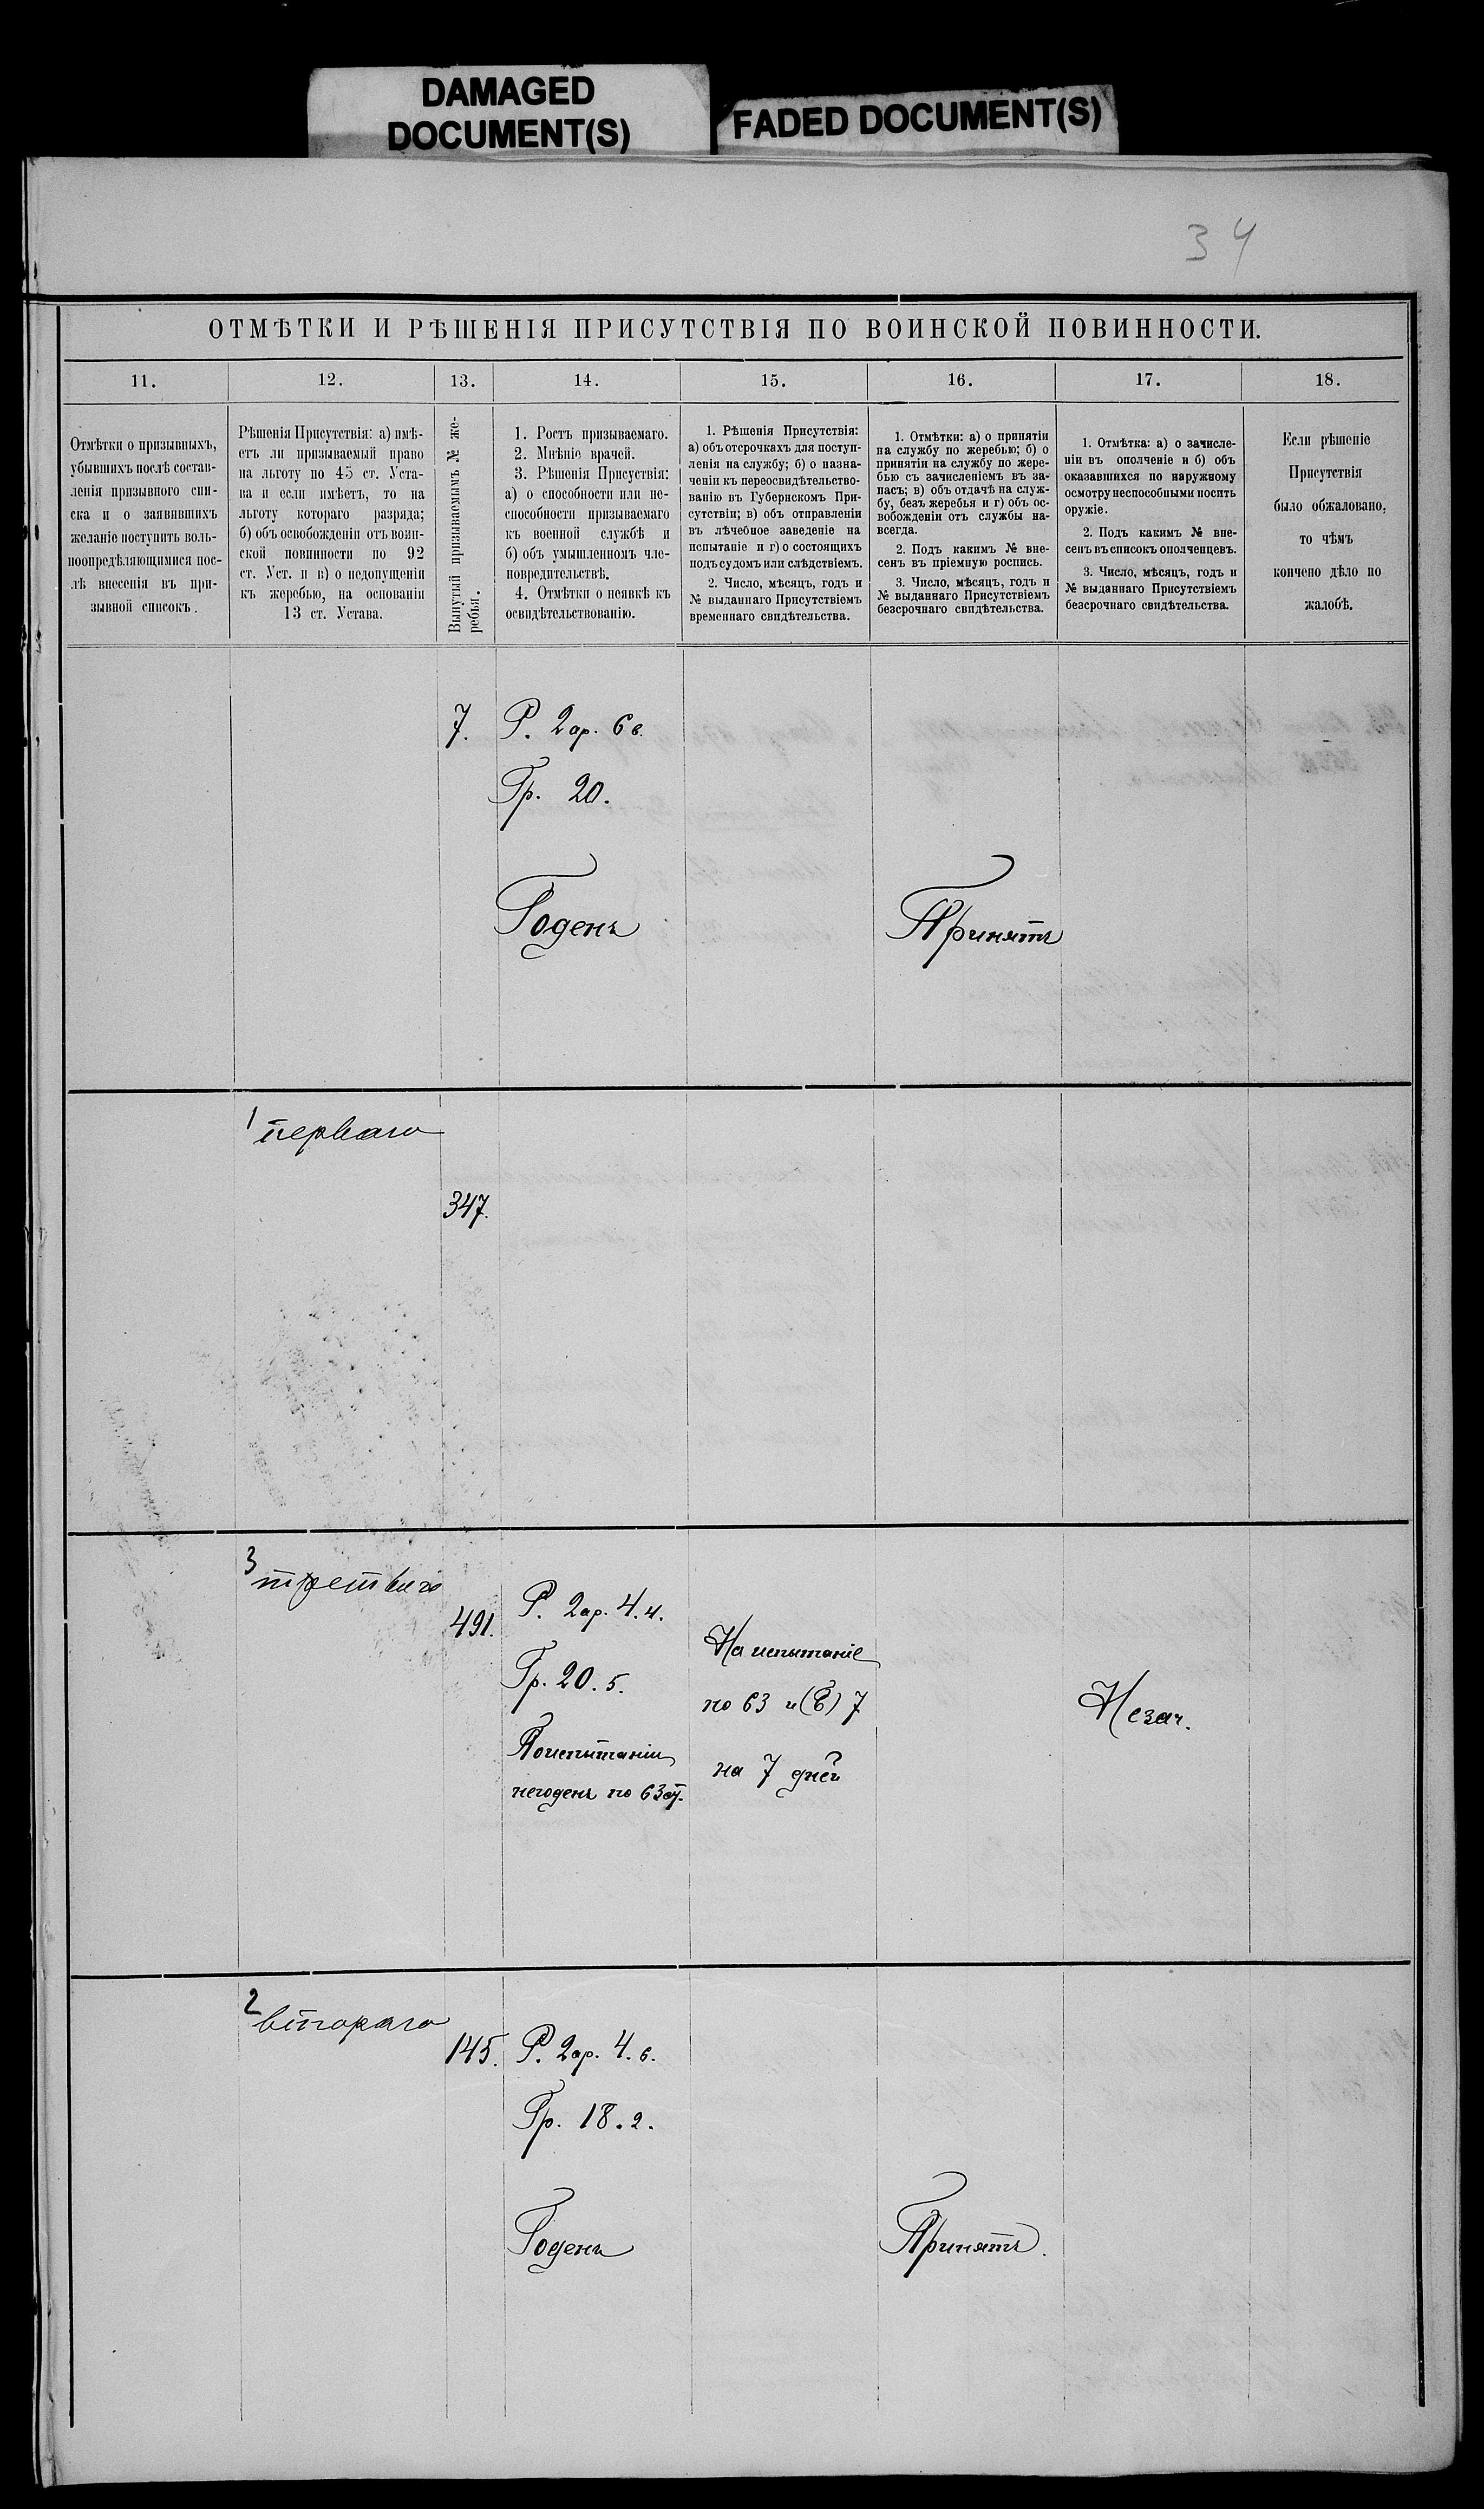 DAMAGED
DOCUMENT(S)
FADED DOCUMENT(S)
34
ОТМѢТКИ И РѢШЕНІЯ ПРИСУТСТВІЯ ПО ВОИНСКОЙ ПОВИННОСТИ.
11.
12.
13.
14.
15.
16.
17.
18.
Отмѣтки о призывныхъ,
убывшихъ послѣ состав-
ленія призывного спи-
ска и о заявившихъ
желаніе поступить воль-
ноопредѣляющимися пос-
лѣ внесенія въ при-
зывной списокъ.
Рѣшенія Присутствія: а) имѣ-
етъ ли призываемый право
на льготу по 45 ст. Уста-
ва и если имѣетъ, то на
льготу котораго разряда;
б) объ освобожденіи отъ воин-
ской повинности по 92
ст. Уст. и в) о недопущеніи
къ жеребью, на основаніи
13 ст. Устава.
Вынутый призываемымъ № же-
ребья.
1. Ростъ призываемаго.
2. Мнѣніе врачей.
3. Рѣшенія Присуствія:
а) о способности или не-
способности призываемаго
къ военной службѣ и
б) объ умышленномъ чле-
новредительствѣ.
4. Отмѣтки о неявкѣ къ
освидѣтельствованію.
1. Рѣшенія Присутствія:
а) объ отсрочкахъ для поступ-
ленія на службу; б) о назна-
ченіи къ переосвидѣтельство-
ванію въ Губернскомъ При-
сутствіи; в) объ отправленіи
въ лѣчебное заведеніе на
испытаніе и г) о состоящихъ
подъ судомъ или слѣдствіемъ.
2. Число, мѣсяцъ, годъ и
№ выданнаго Присутствіемъ
временнаго свидѣтельства.
1. Отмѣтки: а) о принятіи
на службу по жеребью; б) о
принятіи на службу по жере-
бью съ зачисленіемъ въ за-
пасъ; в) объ отдачѣ на служ-
бу, безъ жеребья и г) объ ос-
вобожденіи отъ службы на-
всегда.
2. Подъ какимъ № вне-
сенъ въ пріемную роспись.
3. Число, мѣсяцъ, годъ и
№ выданнаго Присутствіемъ
безсрочнаго свидѣтельства.
1. Отмѣтка: а) о зачисле-
ніи въ ополченіе и б) объ
оказавшихся по наружному
осмотру неспособными носить
оружіе.
2. Подъ какимъ № вне-
сенъ въ списокъ ополченцевъ.
3. Число, мѣсяцъ, годъ и
№ выданнаго Присутствіемъ
безсрочнаго свидѣтельства.
Если рѣшеніе
Присутствія
было обжаловано,
то чѣмъ
кончено дѣло по
жалобѣ.
7.
Р. 2 ар. 6 в.
Гр. 20.
Годенъ
Принятъ
1 перваго
347.
3 третьяго
491.
Р. 2 ар. 4. ч.
Гр. 20. 5.
По испытаніи
негоденъ по 63 ст.
На испытаніе
по 63 и (В) 7
на 7 дней
Незач.
2 втораго
145.
Р. 2 ар. 4. в.
Гр. 18. 2.
Годенъ
Принятъ.